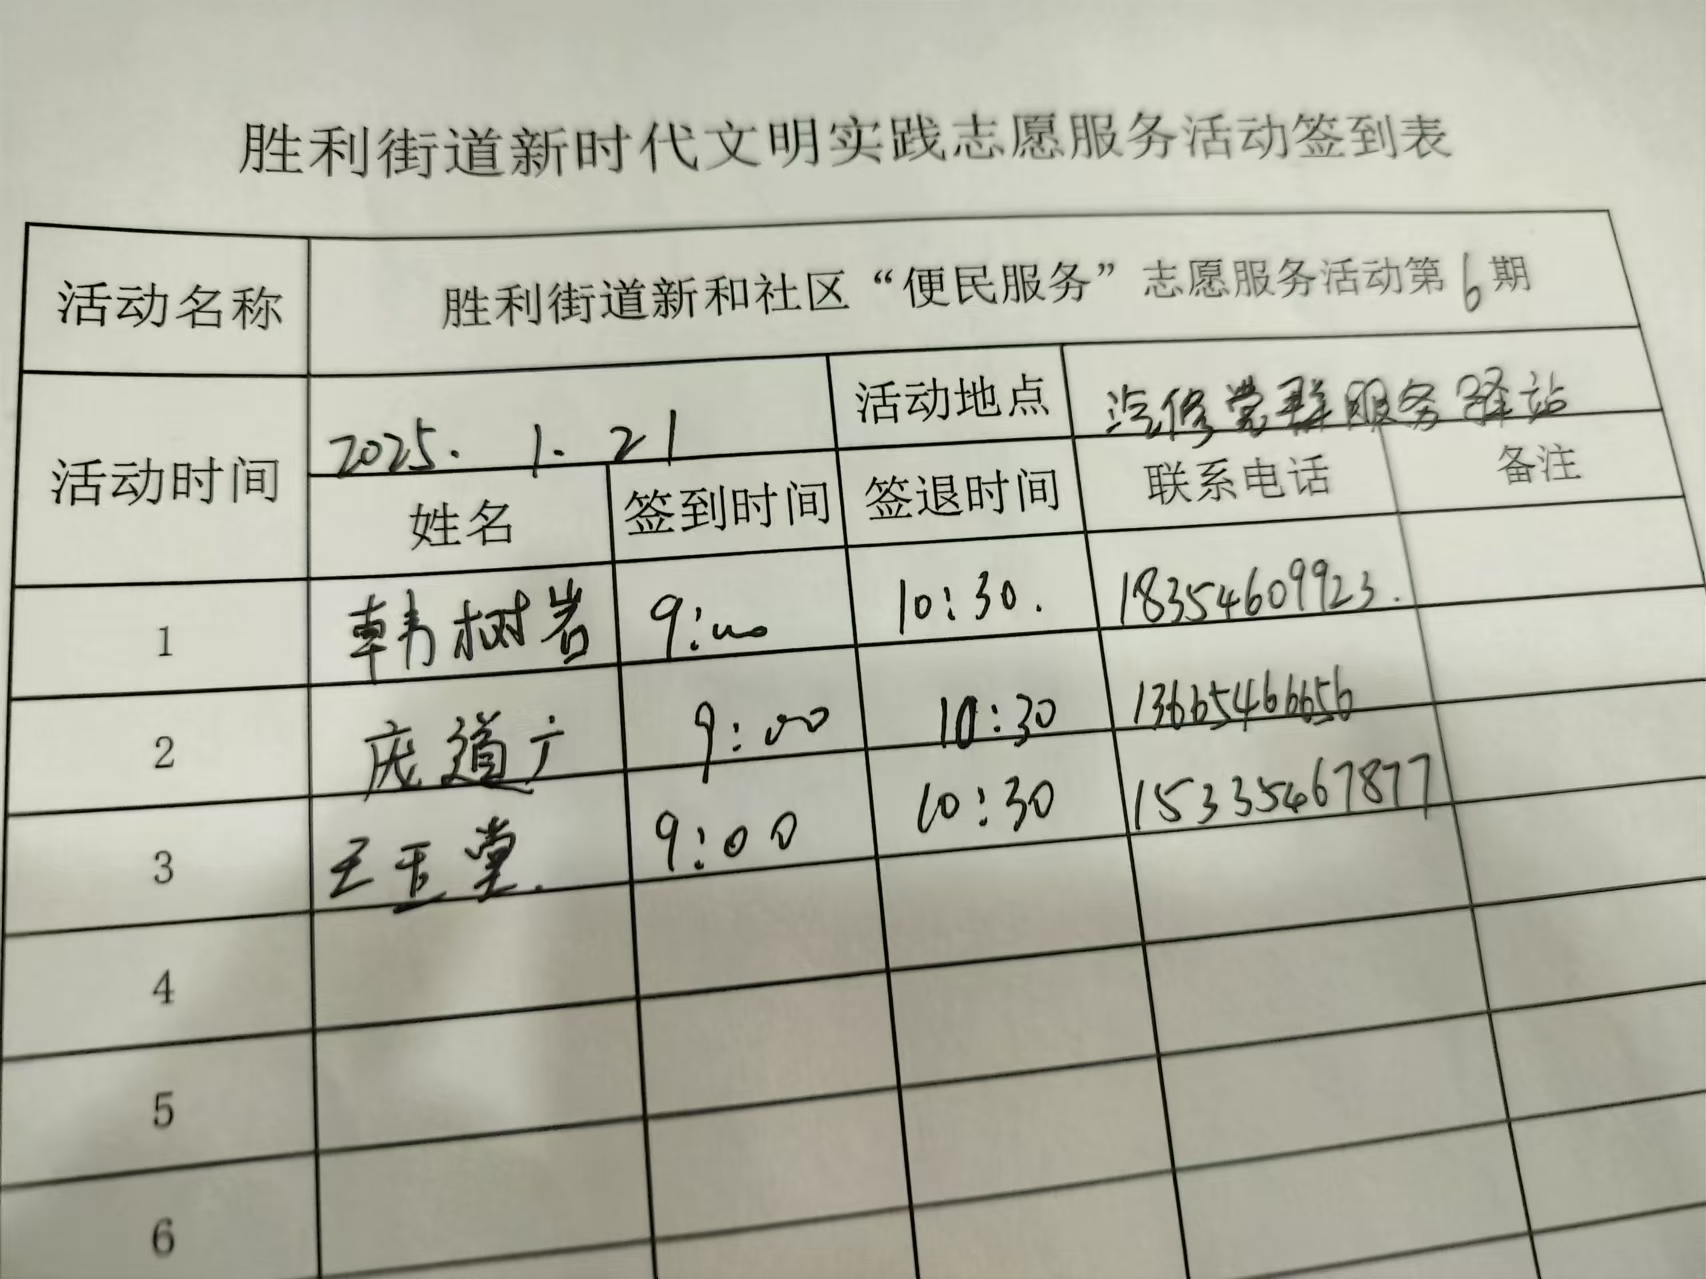 胜利街道新时代文明实践志愿服务活动签到表
活动名称 胜利街道新和社区“便民服务”志愿服务活动第6期
活动时间 2025.1.21 活动地点 汽修党群服务驿站
姓名 签到时间 签退时间 联系电话 备注
1 韩树岩 9:00 10:30. 18354609923.
2 庞道广 9:00 10:30 13665466656
3 王玉堂. 9:00 10:30 15335467877
4
5
6